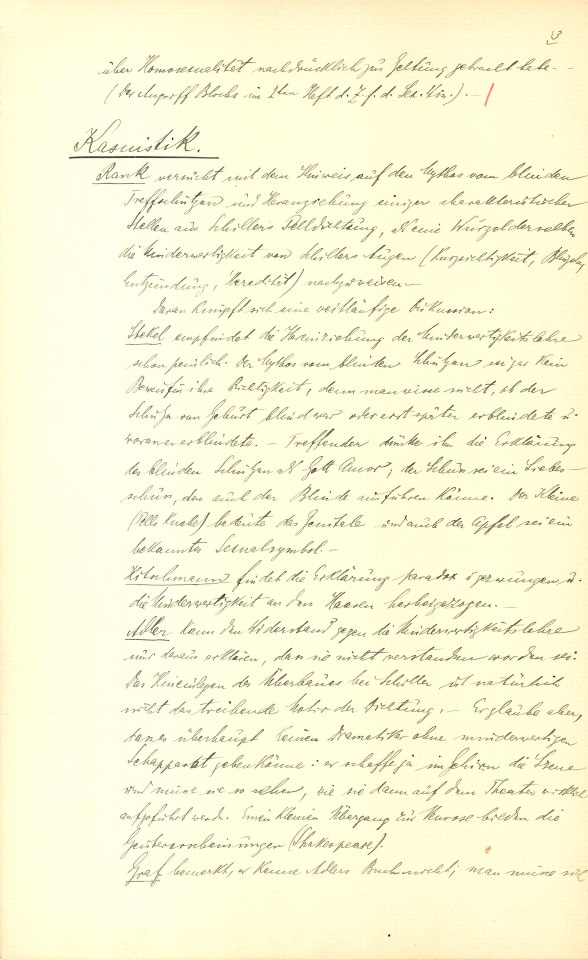 3
über Homosexualität nachdrücklich zur Geltung gebracht habe –
(Der Angriff Blochs im 2ten Heft d. Z. f. d. Sex. Wis.). –
Kasuistik.
Rank versucht mit dem Hinweis auf den Mythos vom blinden
Treffschützen und Heranziehung einiger charakteristischer
Stellen aus Schillers Telldichtung, als eine Wurzel derselben
die Minderwertigkeit von Schillers Augen (Kurzsichtigkeit,
entzündung, Heredität) nachzuweisen –
Daran knüpft sich eine weitläufige Diskussion:
Stekel empfindet die Hereinziehung der Minderwertigkeitslehre
schon peinlich. Der Mythos vom blinden Schützen sei gar kein
Beweis für ihre Richtigkeit, denn man wisse nicht, ob der
Schütze von Geburt blind war oder erst später erblindete u.
woran er erblindete. – Treffender dünke ihn die Erklärung
des blinden Schützen als Gott Amor; der Schuss sei ein Liebes-
schuss, den auch der Blinde ausführen könne. Der Kleine
(Tells Knabe) bedeute das Genitale und auch der Apfel sei ein
bekanntes Sexualsymbol. –
Hitschmann findet die Erklärung paradox u gezwungen u.
die Minderwertigkeit an den Haaren herbeigezogen. –
Adler kann den Widerstand gegen die Minderwertigkeitslehre
nur daraus erklären, dass sie nicht verstanden worden sei.
Das Hineinlegen des Überbaues bei Schiller ist natürlich
nicht das treibende Motiv der Dichtung. – Er glaube aber,
dass es überhaupt keinen Dramatiker ohne minderwertigen
Sehapparat geben könne: er schaffe ja im Gehirn die Szene
und müsse sie so sehen, wie sie dann auf dem Theater wirklich
aufgeführt werde. Einen kleinen Übergang zur Neurose bieden die
Geistererscheinungen (Shakespeare).
Graf bemerkt, er kenne Adlers Buch nicht; man müsse sich